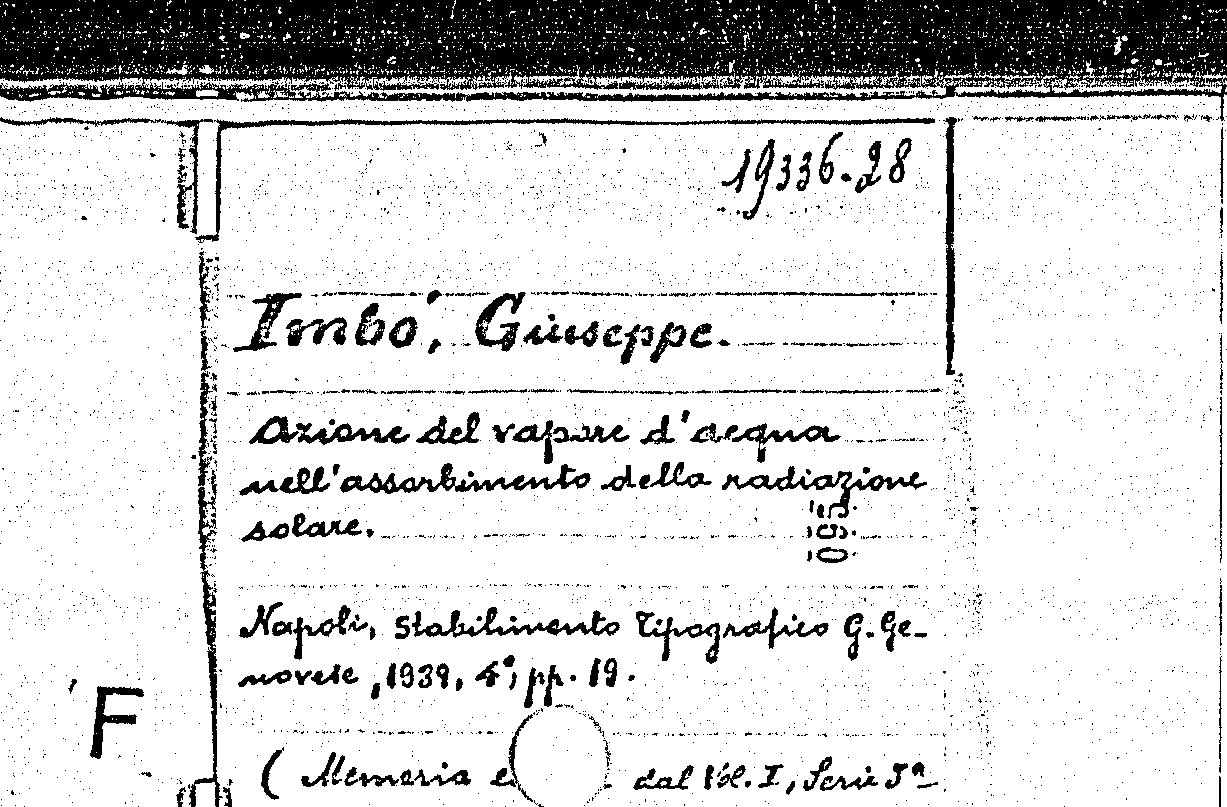 19336.28
Imbó, Giuseppe.
Azione del vapore d'acqua
nell'assorbimento della radiazione
solare.
Napoli, Stabilimento Tipografico G. Ge-
novese, 1939, 4°, pp. 19.
F
( Memoria dal Vol. I, Serie 5ª